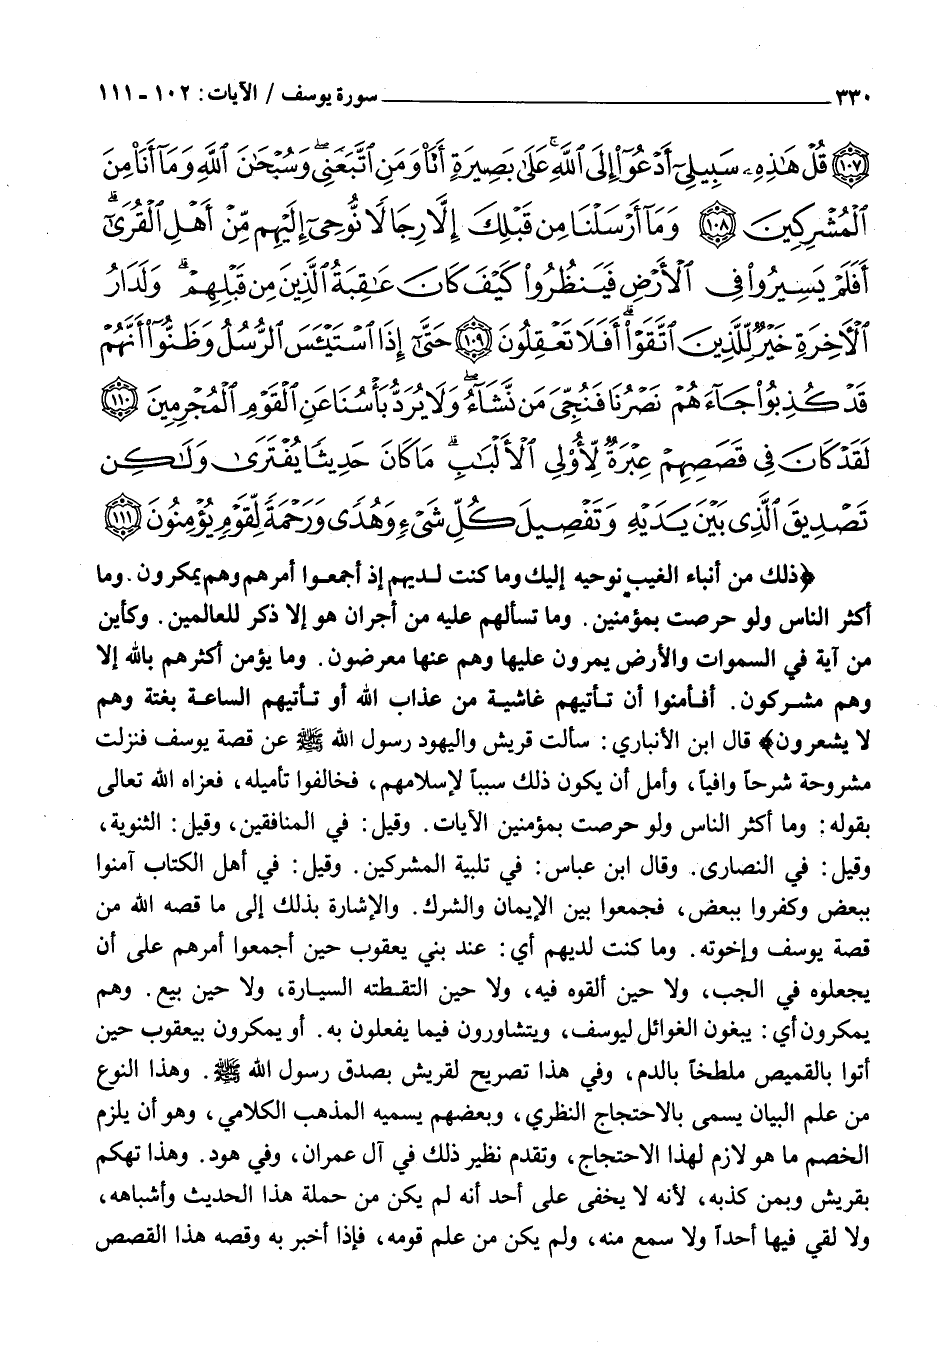 ٣٣٠ سورة يوسف / الآيات: ١٠٢ - ١١١
﴿١٠٧﴾ قُلْ هَٰذِهِۦ سَبِيلِىٓ أَدْعُوٓا۟ إِلَى ٱللَّهِ ۚ عَلَىٰ بَصِيرَةٍ أَنَا۠ وَمَنِ ٱتَّبَعَنِى ۖ وَسُبْحَٰنَ ٱللَّهِ وَمَآ أَنَا۠ مِنَ
ٱلْمُشْرِكِينَ ﴿١٠٨﴾ وَمَآ أَرْسَلْنَا مِن قَبْلِكَ إِلَّا رِجَالًا نُّوحِىٓ إِلَيْهِم مِّنْ أَهْلِ ٱلْقُرَىٰٓ ۗ
أَفَلَمْ يَسِيرُوا۟ فِى ٱلْأَرْضِ فَيَنظُرُوا۟ كَيْفَ كَانَ عَٰقِبَةُ ٱلَّذِينَ مِن قَبْلِهِمْ ۗ وَلَدَارُ
ٱلْءَاخِرَةِ خَيْرٌ لِّلَّذِينَ ٱتَّقَوْا۟ ۗ أَفَلَا تَعْقِلُونَ ﴿١٠٩﴾ حَتَّىٰٓ إِذَا ٱسْتَيْـَٔسَ ٱلرُّسُلُ وَظَنُّوٓا۟ أَنَّهُمْ
قَدْ كُذِبُوا۟ جَآءَهُمْ نَصْرُنَا فَنُجِّىَ مَن نَّشَآءُ ۖ وَلَا يُرَدُّ بَأْسُنَا عَنِ ٱلْقَوْمِ ٱلْمُجْرِمِينَ ﴿١١٠﴾
لَقَدْ كَانَ فِى قَصَصِهِمْ عِبْرَةٌ لِّأُو۟لِى ٱلْأَلْبَٰبِ ۗ مَا كَانَ حَدِيثًا يُفْتَرَىٰ وَلَٰكِن
تَصْدِيقَ ٱلَّذِى بَيْنَ يَدَيْهِ وَتَفْصِيلَ كُلِّ شَىْءٍ وَهُدًى وَرَحْمَةً لِّقَوْمٍ يُؤْمِنُونَ ﴿١١١﴾
﴿ذلك من أنباء الغيب نوحيه إليك وما كنت لديهم إذ أجمعوا أمرهم وهم يمكرون. وما
أكثر الناس ولو حرصت بمؤمنين. وما تسألهم عليه من أجران هو إلا ذكر للعالمين. وكأين
من آية في السموات والأرض يمرون عليها وهم عنها معرضون. وما يؤمن أكثرهم بالله إلا
وهم مشركون. أفأمنوا أن تأتيهم غاشية من عذاب الله أو تأتيهم الساعة بغتة وهم
لا يشعرون﴾ قال ابن الأنباري: سألت قريش واليهود رسول الله ﷺ عن قصة يوسف فنزلت
مشروحة شرحاً وافياً، وأمل أن يكون ذلك سبباً لإسلامهم، فخالفوا تأميله، فعزاه الله تعالى
بقوله: وما أكثر الناس ولو حرصت بمؤمنين الآيات. وقيل: في المنافقين، وقيل: الثنوية،
وقيل: في النصارى. وقال ابن عباس: في تلبية المشركين. وقيل: في أهل الكتاب آمنوا
ببعض وكفروا ببعض، فجمعوا بين الإيمان والشرك. والإشارة بذلك إلى ما قصه الله من
قصة يوسف وإخوته. وما كنت لديهم أي: عند بني يعقوب حين أجمعوا أمرهم على أن
يجعلوه في الجب، ولا حين ألقوه فيه، ولا حين التقطته السيارة، ولا حين بيع. وهم
يمكرون أي: يبغون الغوائل ليوسف، ويتشاورون فيما يفعلون به. أو يمكرون بيعقوب حين
أتوا بالقميص ملطخاً بالدم، وفي هذا تصريح لقريش بصدق رسول الله ﷺ. وهذا النوع
من علم البيان يسمى بالاحتجاج النظري، وبعضهم يسميه المذهب الكلامي، وهو أن يلزم
الخصم ما هو لازم لهذا الاحتجاج، وتقدم نظير ذلك في آل عمران، وفي هود. وهذا تهكم
بقريش وبمن كذبه، لأنه لا يخفى على أحد أنه لم يكن من حملة هذا الحديث وأشباهه،
ولا لقي فيها أحداً ولا سمع منه، ولم يكن من علم قومه، فإذا أخبر به وقصه هذا القصص